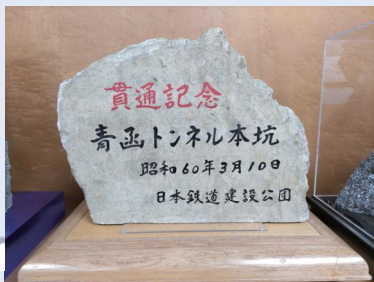 貫通記念
青函トンネル本坑
昭和60年3月10日
日本鉄道建設公団